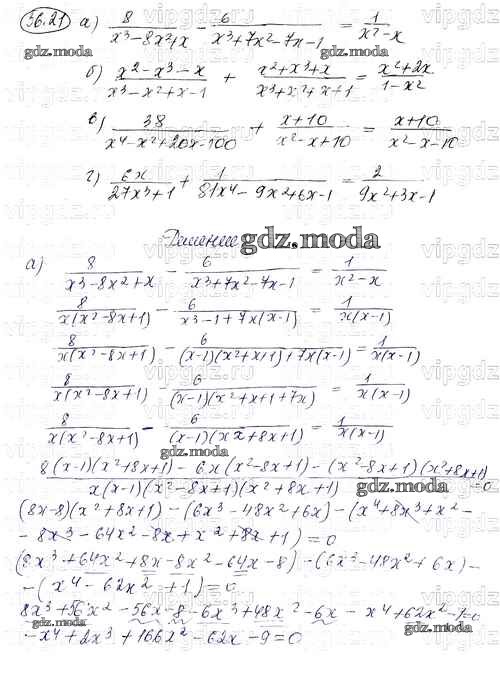 36.21 а) 8/(x³-8x²+x) - 6/(x³+7x²-7x-1) = 1/(x²-x)
gdz.moda
б) (x²-x³-x)/(x³-x²+x-1) + (x²+x³+x)/(x³+x²+x+1) = (x²+2x)/(1-x²)
в) 38/(x⁴-x²+20x-100) + (x+10)/(x²-x+10) = (x+10)/(x²-x-10)
г) 6x/(27x³+1) + 1/(81x⁴-9x²+6x-1) = 2/(9x²+3x-1)
Решение gdz.moda
а) 8/(x³-8x²+x) - 6/(x³+7x²-7x-1) = 1/(x²-x)
8/(x(x²-8x+1)) - 6/(x³-1+7x(x-1)) = 1/(x(x-1))
8/(x(x²-8x+1)) - 6/((x-1)(x²+x+1)+7x(x-1)) = 1/(x(x-1))
8/(x(x²-8x+1)) - 6/((x-1)(x²+x+1+7x)) = 1/(x(x-1))
8/(x(x²-8x+1)) - 6/((x-1)(x²+8x+1)) = 1/(x(x-1))
gdz.moda
(8(x-1)(x²+8x+1) - 6x(x²-8x+1) - (x²-8x+1)(x²+8x+1))/(x(x-1)(x²-8x+1)(x²+8x+1)) = 0
gdz.moda
(8x-8)(x²+8x+1) - (6x³-48x²+6x) - (x⁴+8x³+x²-
-8x³-64x²-8x+x²+8x+1) = 0
(8x³+64x²+8x-8x²-64x-8) - (6x³-48x²+6x) -
-(x⁴-62x²+1) = 0
8x³+56x²-56x-8-6x³+48x²-6x-x⁴+62x²-1=0
-x⁴+2x³+166x²-62x-9=0
gdz.moda
gdz.moda